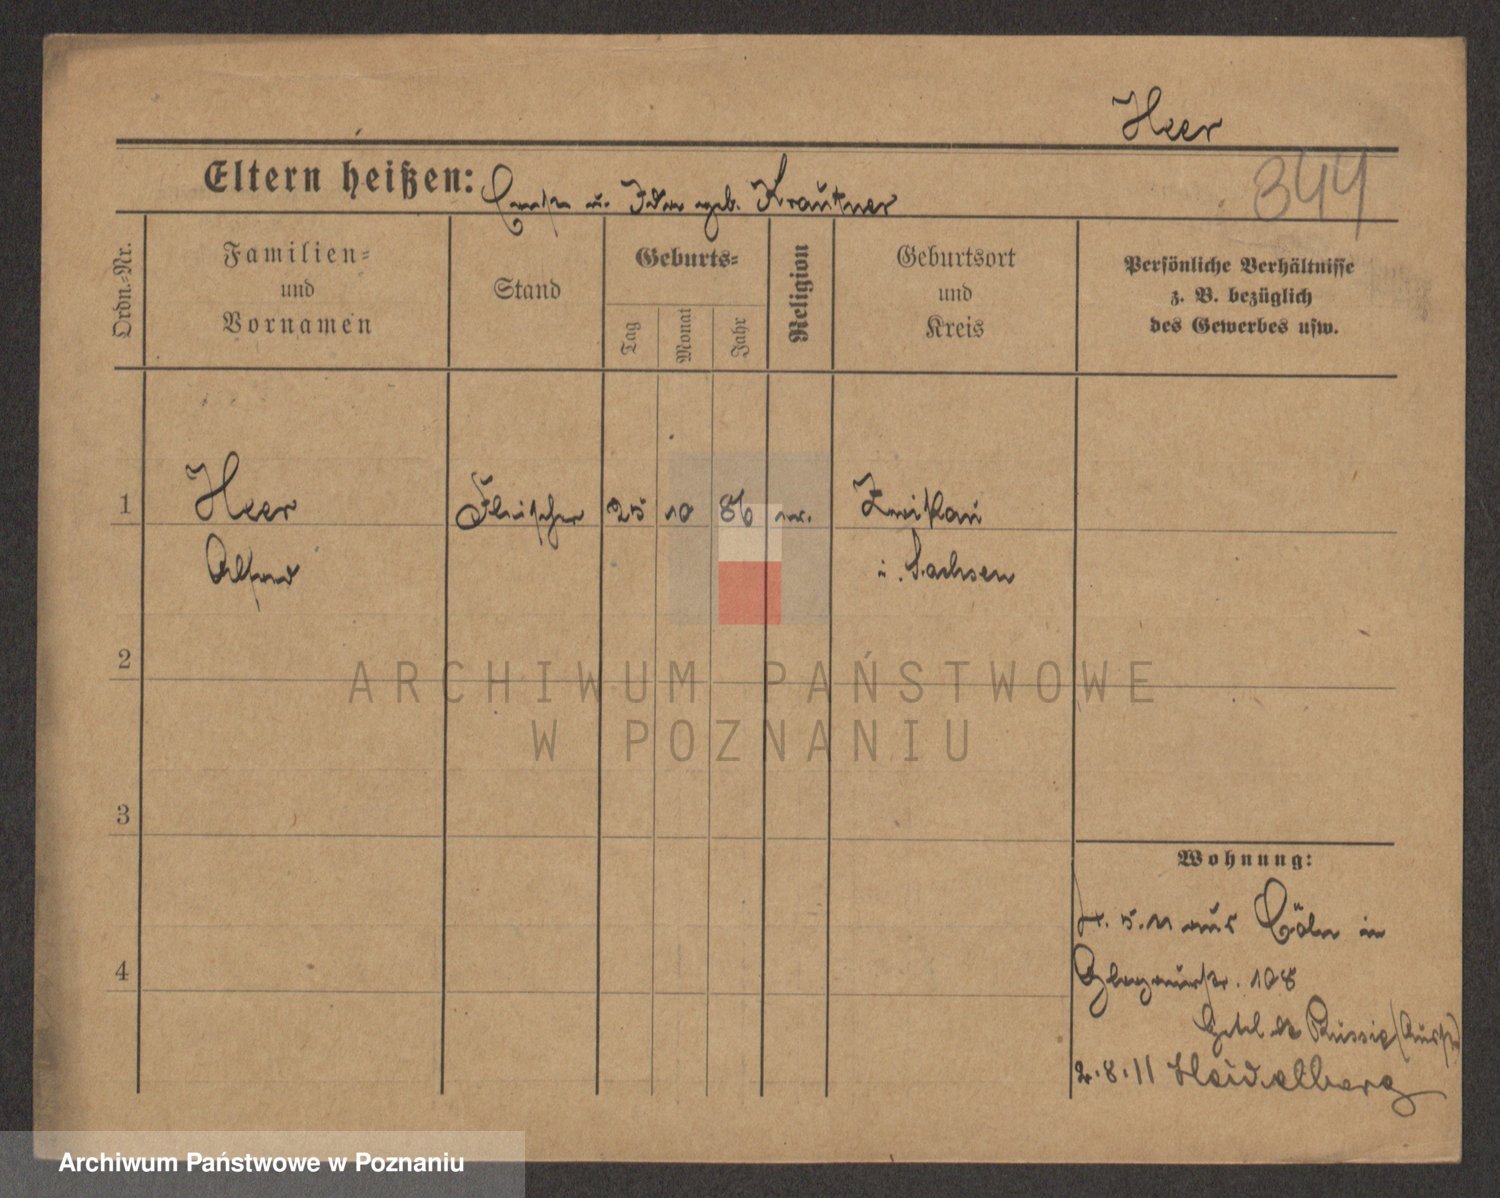 Heer
344
Eltern heißen: u. Ida geb. Krautner
Ordn.=Nr.
Familien=
und
Vornamen
Stand
Geburts=
Tag
Monat
Jahr
Religion
Geburtsort
und
Kreis
Persönliche Verhältnisse
z. B. bezüglich
des Gewerbes usw.
1 Heer Fleischer 25 10 86 ev. Zwickau
Alfred i. Sachsen
2
3
4
Wohnung:
5. 11 aus Cöln in
Glogauerstr. 108
2.8.11 Heidelberg
ARCHIWUM PAŃSTWOWE
W POZNANIU
Archiwum Państwowe w Poznaniu